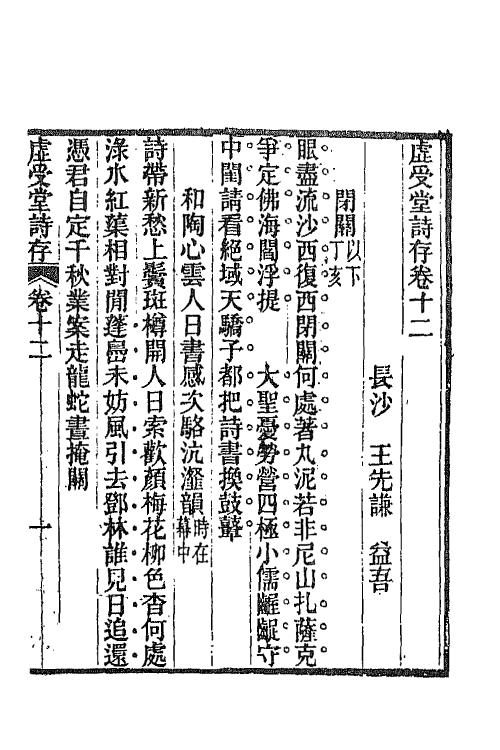 虛受堂詩存卷十二
長沙　王先謙　益吾
閉關以下丁亥
眼盡流沙西復西閉關何處著丸泥若非尼山扎薩克
爭定佛海閻浮提　大聖憂勞營四極小儒齷齪守
中閨請看絕域天驕子都把詩書換鼓鼙
和陶心雲人日書感次駱沆瀣韻時在幕中
詩帶新愁上鬢斑樽開人日索歡顏梅花柳色杳何處
淥水紅蕖相對閒蓬島未妨風引去鄧林誰見日追還
憑君自定千秋業案走龍蛇晝掩關
虛受堂詩存　卷十二　一